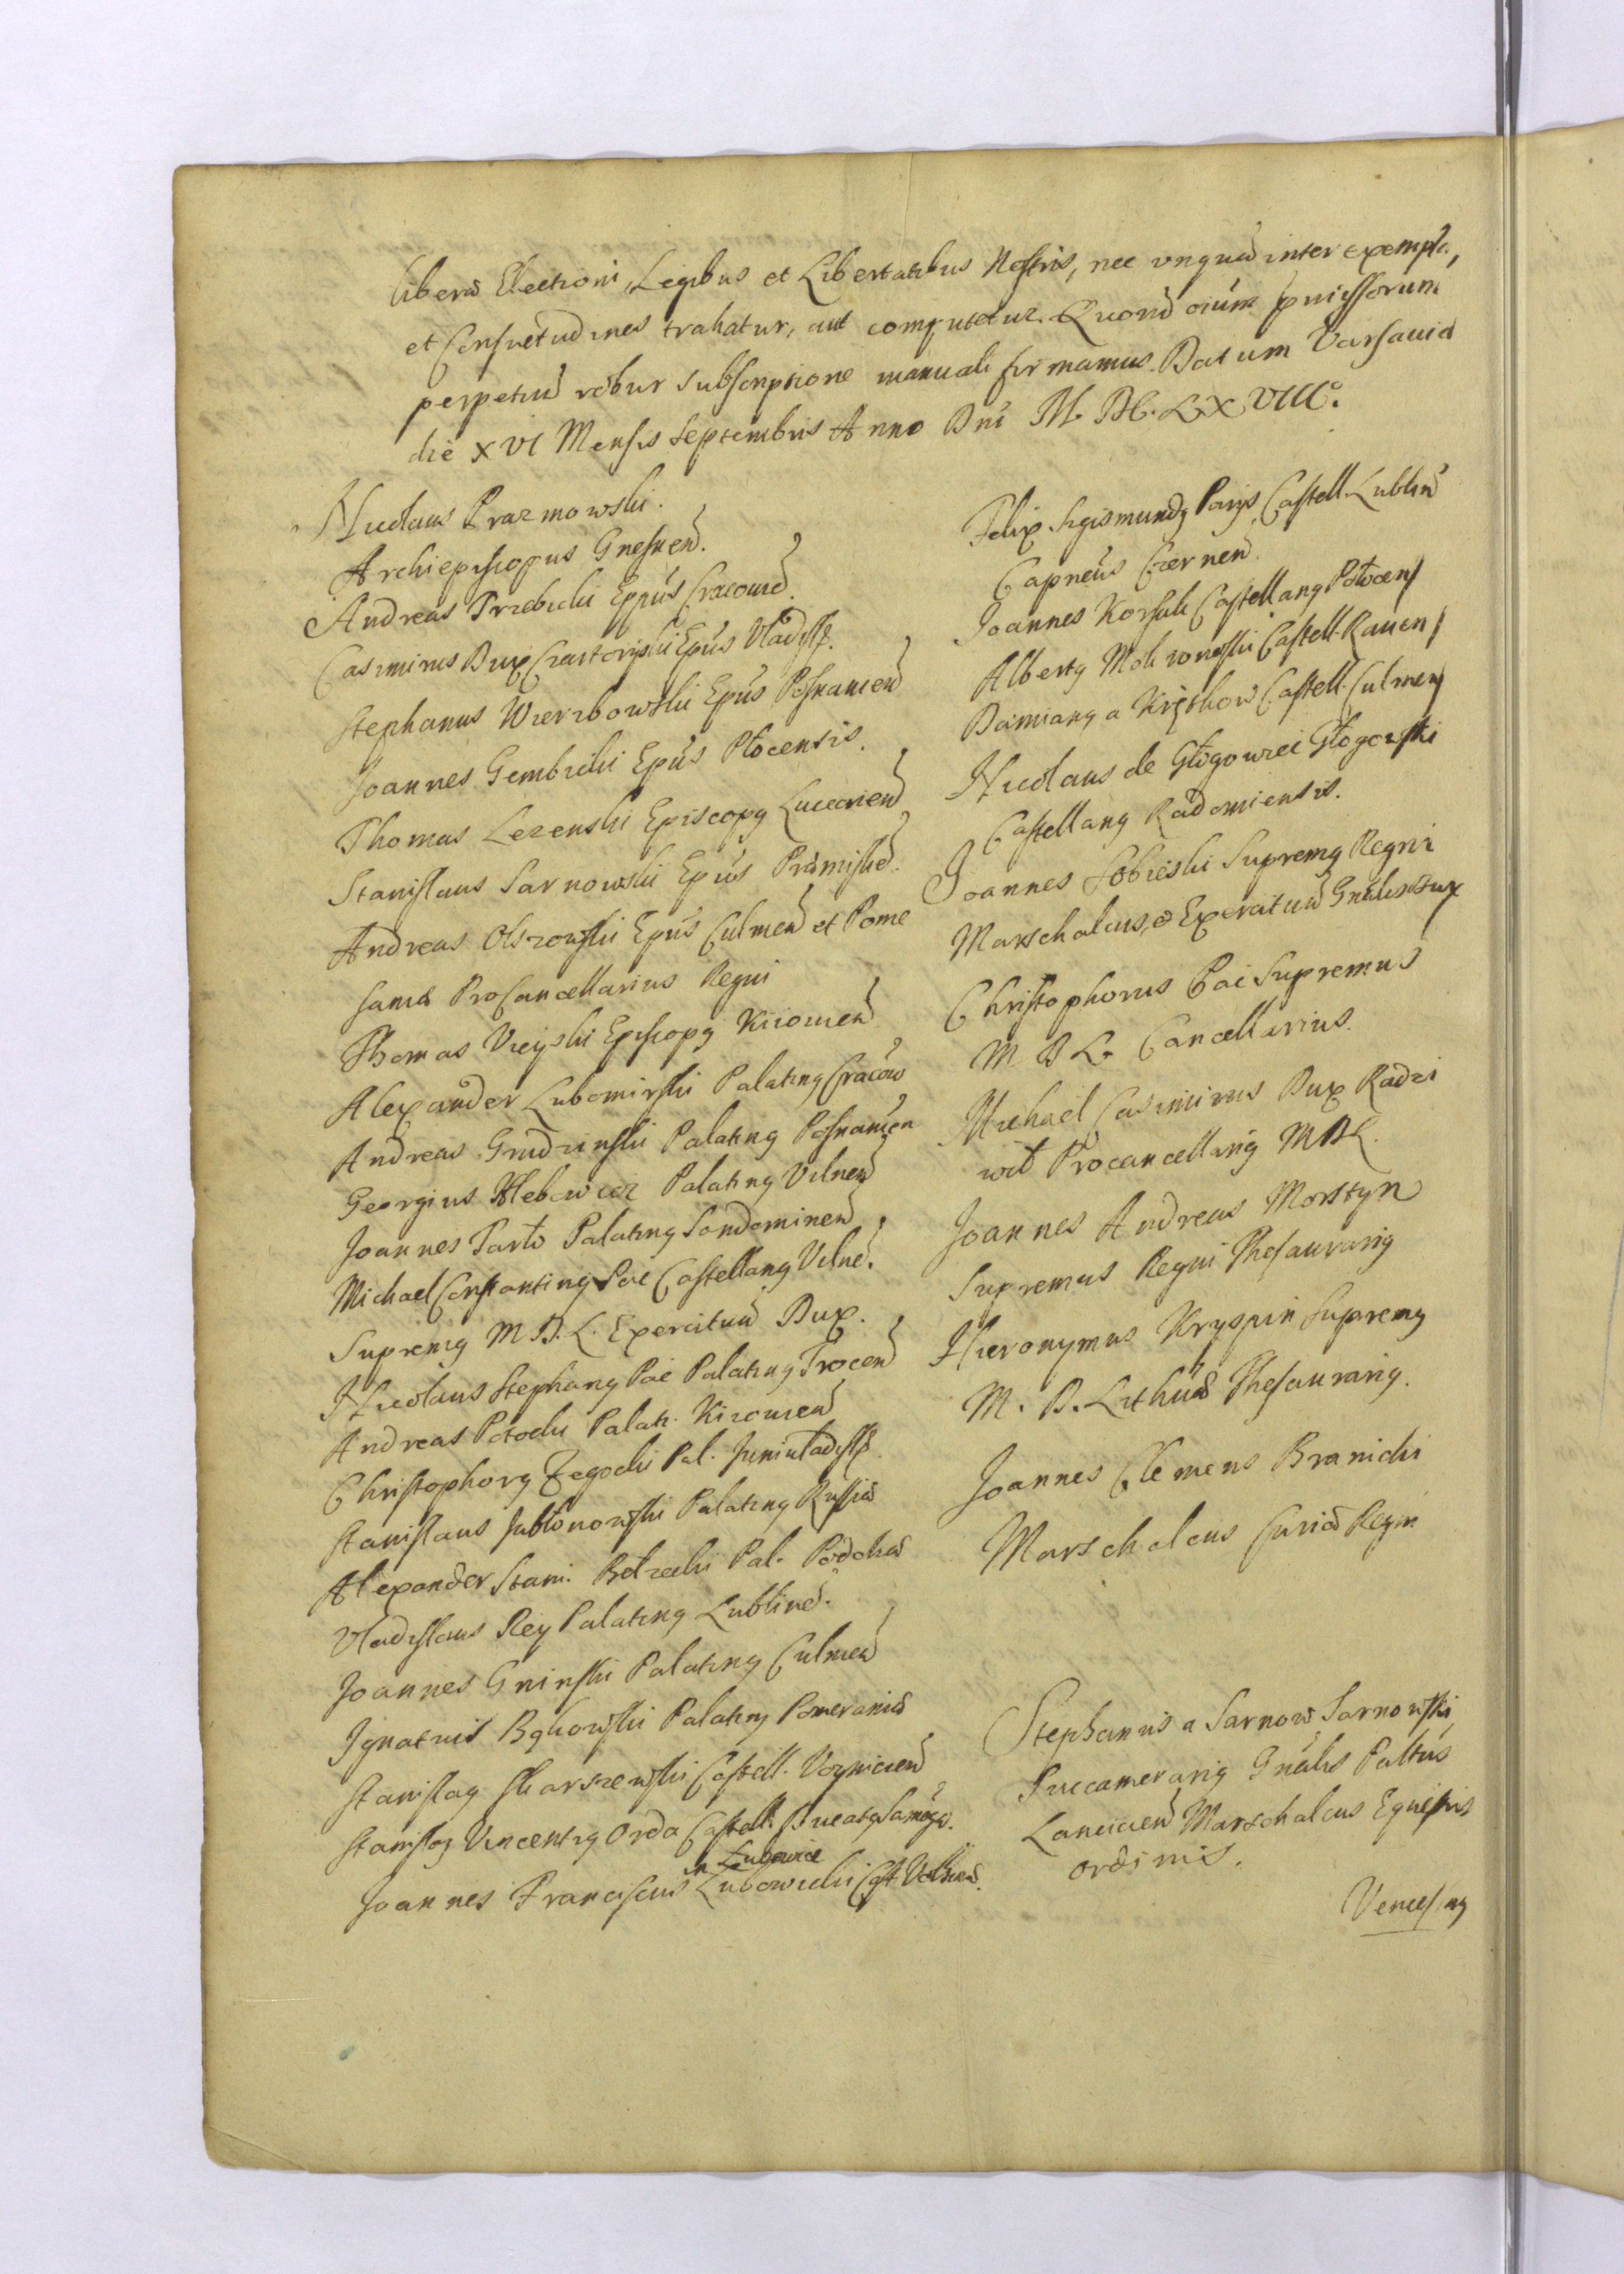 libera Electioni, Legibus et Libertatibus Nostris, nec unqua inter exempla,
et Consuetudines trahatur, aut computetur. Quoru oium pmissorum
perpetuu robur subscriptione manuali firmamus. Datum Varsavia
die XVI Mensis Septembris Anno Dni M. DC. LXVIII.
Nicolaus Prazmowski.
Archiepiscopus Gnesnen.
Andreas Trzebicki Eppus Cracovien.
Casimirus Dux Czartoryski Epus Vladisl.
Stephanus Wierzbowski Epus Posnanien
Joannes Gembicki Epus Plocensis.
Thomas Lezenski Episcopg Luceorien
Stanislaus Sarnowski Epus Pramislien.
Andreas Olszowski Epus Culmen et Pome
sania ProCancellarius Regni
Thomas Vieyski Episcopg Kiiovien
Alexander Lubomirski Palating Cracov
Andreas Grudzinski Palating Posnanien
Georgius Hlebowicz Palating Vilnen
Joannes Tarlo Palating Sandomirien
Michael Constanting Pac Castellang Vilnen.
Supremg M. D. L. Exercituu Dux.
Nicolaus Stephang Pac Palating Trocen
Andreas Potocki Palat. Kiiovien
Christophorg Zegocki Pal. Juniuladisl.
Stanislaus Jablonowski Palating Russia
Alexander Stani. Belzecki Pal. Podolia
Vladislaus Rey Palating Lublinen.
Joannes Gninski Palating Culmen
Ignatius Bąkowski Palating Pomerania
Stanislag Skarszewski Castell. Voynicien
Stanislag Vincentig Orda Castell. Ducatg Samogi.
in Lubowice
Joannes Franciscus Lubowicki Cast. Volhien.
Felix Sigismundg Parys Castell. Lublin
Capneus Czernen.
Joannes Korsak Castellang Polocen
Alberty Mokronoski Castell. Raven
Damiang a Kręthow Castell. Culmen
Nicolaus de Glogowiec Glogowski
Castellang Radomiensis.
Joannes Sobieski Supremg Regni
Marschalcus, et Exercituu Gnalis Dux
Christophorus Pac Supremus
M D L. Cancellarius.
Michael Casimirus Dux Radzi
wil Procancellarig MDL.
Joannes Andreas Morstyn
Supremus Regni Thesaurarig
Hieronymus Kryspin Supremg
M. D. Lithua Thesaurarig.
Joannes Clemens Branicki
Marschalcus Curia Regni
Stephanus a Sarnow Sarnowski
Succamerarig Gnalis Paltus
Lancicien Marschalcus Equestris
ordinis.
Vencesl ag